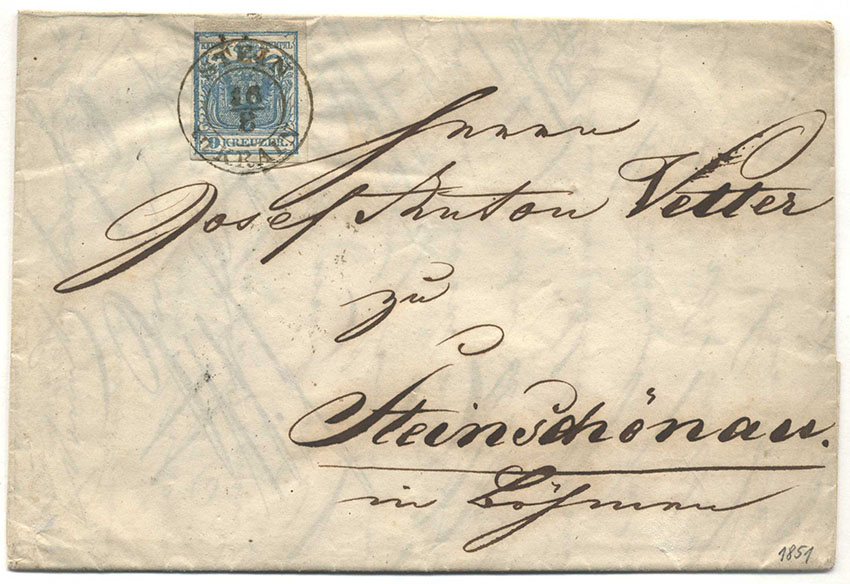 STEIN
16
8
IN KRAIN
9 KREUZER.
Herrn
Josef Anton Vetter
zu
Steinschönau.
in Böhmen
1851